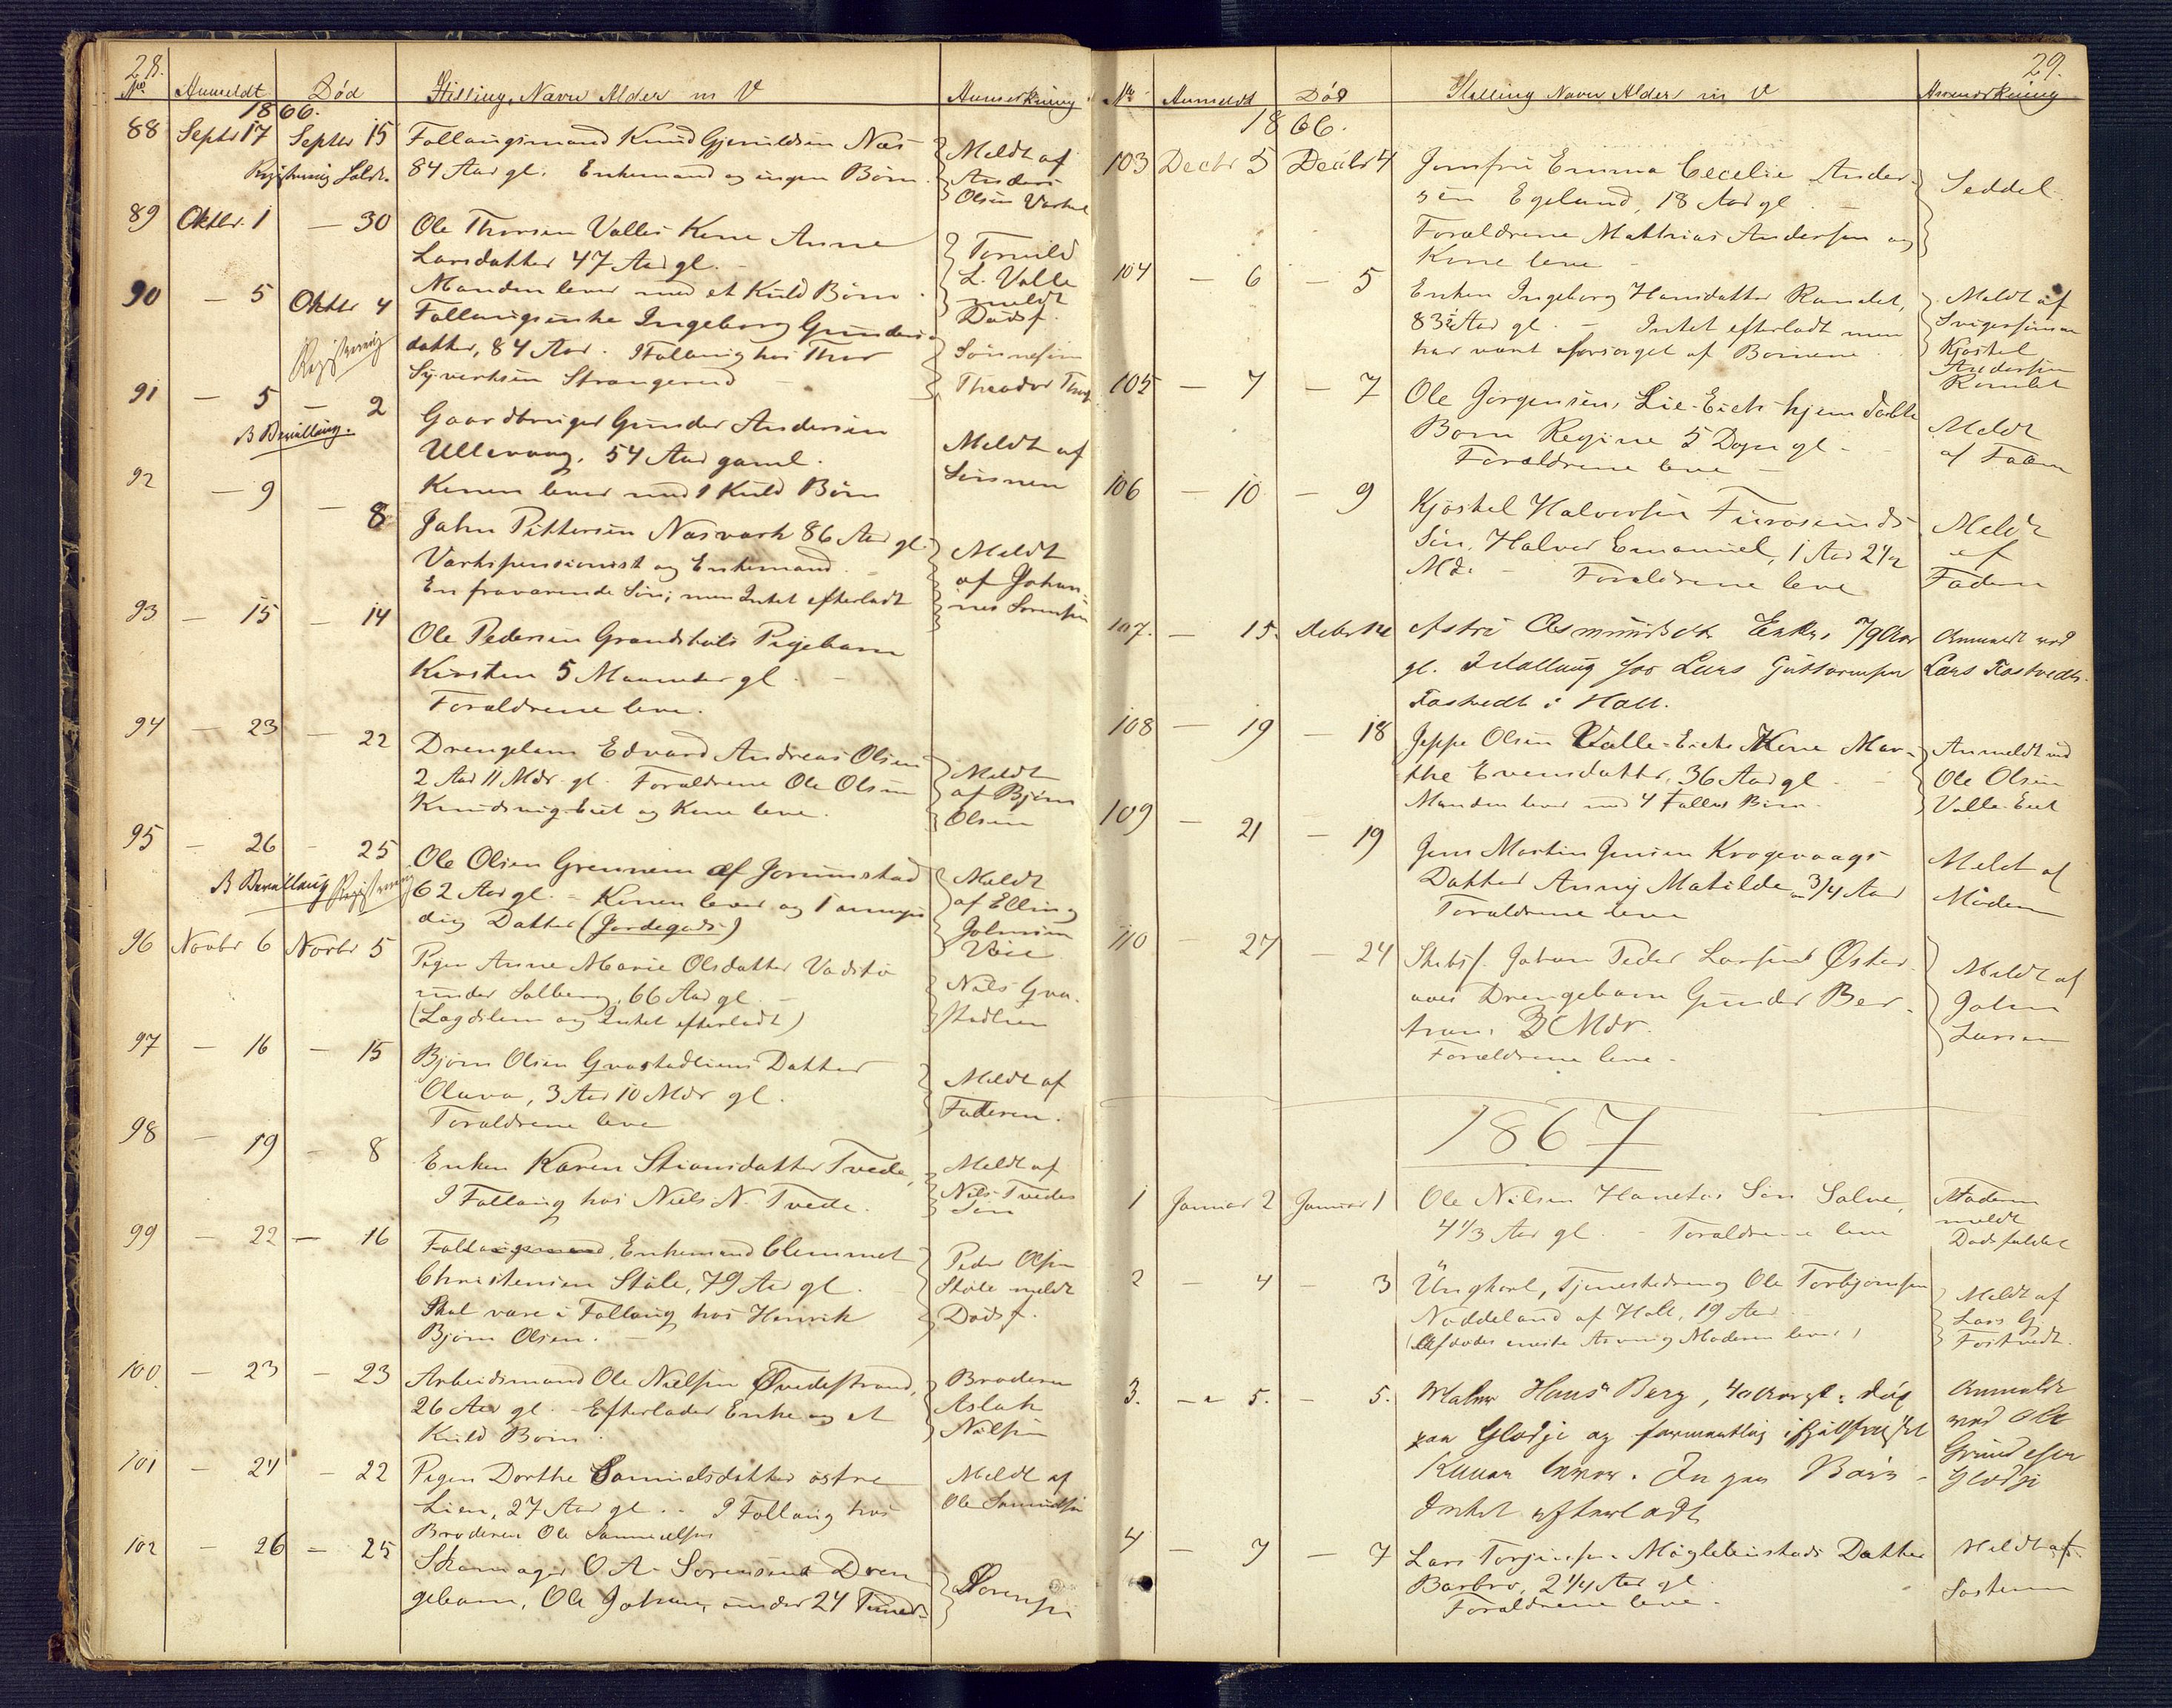 28.
No Anmeldt Død Stilling, Navn Alder m V Anmerkning
1866.
88 Septr 17 Septbr 15 Follaugsmand Knud Gjeruldsen Næs
84 Aar gl. Enkemand og ingen Børn.
Registrering
Meldt af
Anders
Olsen
89 Oktbr. 1 — 30 Ole Thorsen Valles Kone Anne
Larsdatter 47 Aar gl. -
Manden lever med et Kuld Børn.
L. Valle
meldt
Dødsf.
90 — 5 Oktbr 4 Follaugsenke Ingeborg Gunders-
datter, 84 Aar. I Follaug hos Thor
Syvertsen Strangerud
Registrering
Sønnesøn
Theodor
91 — 5 — 2 Gaardbruger Gunder Andersen
Ullevaag, 54 Aar gaml.
Konen lever med 1 Kuld Børn
B Bevilling.
Meldt af
Sønnen
92 — 9 — 8 John Pettersen Næsværk 86 Aar gl.
Værkspensionist og Enkemand.
En fraværende Søn; men Intet efterladt
Meldt
af Johan-
nes Sørensen
93 — 15 — 14 Ole Pedersen Pigebarn
Kirsten 5 Maaneder gl. -
Forældrene leve.
94 — 23 — 22 Drengebarn Edvard Andreas Olsen
2 Aar 11 Mdr gl. Forældrene Ole Olsen
og Kone leve.
Meldt
af Bjørn
Olsen
95 — 26 — 25 Ole Olsen Grennem af Jorunnstad
62 Aar gl. - Konen lever og 1 ammyn
dig Datter (Jordegods)
B Bevilling Registrering
Meldt
af Elling
Johnsen
96 Novbr 6 Novbr 5 Pigen Anne Marie Olsdatter
under Solberg, 66 Aar gl. -
(Lægdslem og Intet efterladt)
Nils Gva-
stadlien
97 — 16 — 15 Bjørn Olsen Gvastadliens Datter
Olava, 3 Aar 10 Mdr gl.
Forældrene leve
Meldt af
Faderen.
98 — 19 — 8 Enken Karen Stiansdatter Tvede,
I Follaug hos Niels N. Tvede.
Meldt af
Nils Tvedes
Søn
99 — 22 — 16 Follaugsmand, Enkemand Clemmet
Christensen Ståle, 79 Aar gl.
Skal være i Follaug hos Henrik
Bjørn Olsen. -
Peder Olsen
Ståle meldt
Dødsf.
100. — 23 — 23 Arbeidsmand Ole Nielsen Tvedestrand,
26 Aar gl. - Efterlader Enke og et
Kuld Børn.
Broderen
Aslak
Nielsen
101 — 24 — 22 Pigen Dorthe Samuelsdatter østre
Lien, 27 Aar gl. - I Follaug hos
Broderen Ole Samuelsen
Meldt af
Ole Samuelsen
102 — 26 — 25 Skomager O. A. Sørensens Dren-
gebarn, Ole Johan, under 24 Timer.
Sørensen
29.
No Anmeldt Død Stilling Navn Alder m V Anmerkning
1866.
103 Decbr 5 Decbr 4 Jomfru Emma Cecelie Ander-
sen Egeland, 18 Aar gl. -
Forældrene Mathias Andersen og
Kone leve -
Seddel.
104 — 6 — 5 Enken Ingeborg Hansdatter Ramdet,
83½ Aar gl. - Intet efterladt men
har været forsørget af Børnene.
Meldt af
Svigersønnen
Kjøstel
Andersen
105 — 7 — 7 Ole Jørgensen, Lie-Eiets hjemdøbte
Barn Regine 5 Døgn gl. -
Forældrene leve -
Meldt
af Faderen
106 — 10 — 9 Kjøstel Halvorsen Furøsunds
Søn, Halvor Emanuel, 1 Aar 2½
Md. - Forældrene leve
Meldt
af
Faderen
107. — 15. Asmundsdtr Enke, 79 Aar
gl. I Follaug hos Lars Guttormsen
i Holt.
Anmeldt ved
Lars
108 — 19 — 18 Jeppe Olsen Valle-Eiets Kone Mar-
the Evensdatter, 36 Aar gl.
Manden lever med 4 Fælles Børn.
Anmeldt ved
Ole Olsen
Valle-Eiet
109 — 21 — 19 Jens Martin Jensen Krogevaags
Datter Anny Matilde 3/4 Aar
Forældrene leve
Meldt af
Moderen
110 — 27 — 24 Skibsf. Johan Peder Larsens Øster-
aaes Drengebarn Gunder Ber-
tran. 3 Mdr.
Forældrene leve.
Meldt af
John
Larsen
1867
1 Januar 2 Januar 1 Ole Nilsen Hanetos Søn Salve,
4 1/3 Aar gl. - Forældrene leve
Faderen
meldt
Dødsfaldet
2 — 4 — 3 Ungkarl, Tjenestedreng Ole Torbjørnsen
Noddeland af Holt, 19 Aar
(Afdødes eneste Arving Moderen lever)
Meldt af
Lars G.
3. — 5. — 5. Maler Hans Berg, 40 Aar gl. død
paa Glødje og formentlig
Konen lever. Ingen Børn -
Intet efterladt
Anmeldt
ved Ole
Gundersen
Glødje
4 — 7 — 7 Lars Torjussen Møglebustads Datter
Barbro, 2 1/4 Aar gl.
Forældrene leve.
Meldt af
Søsteren